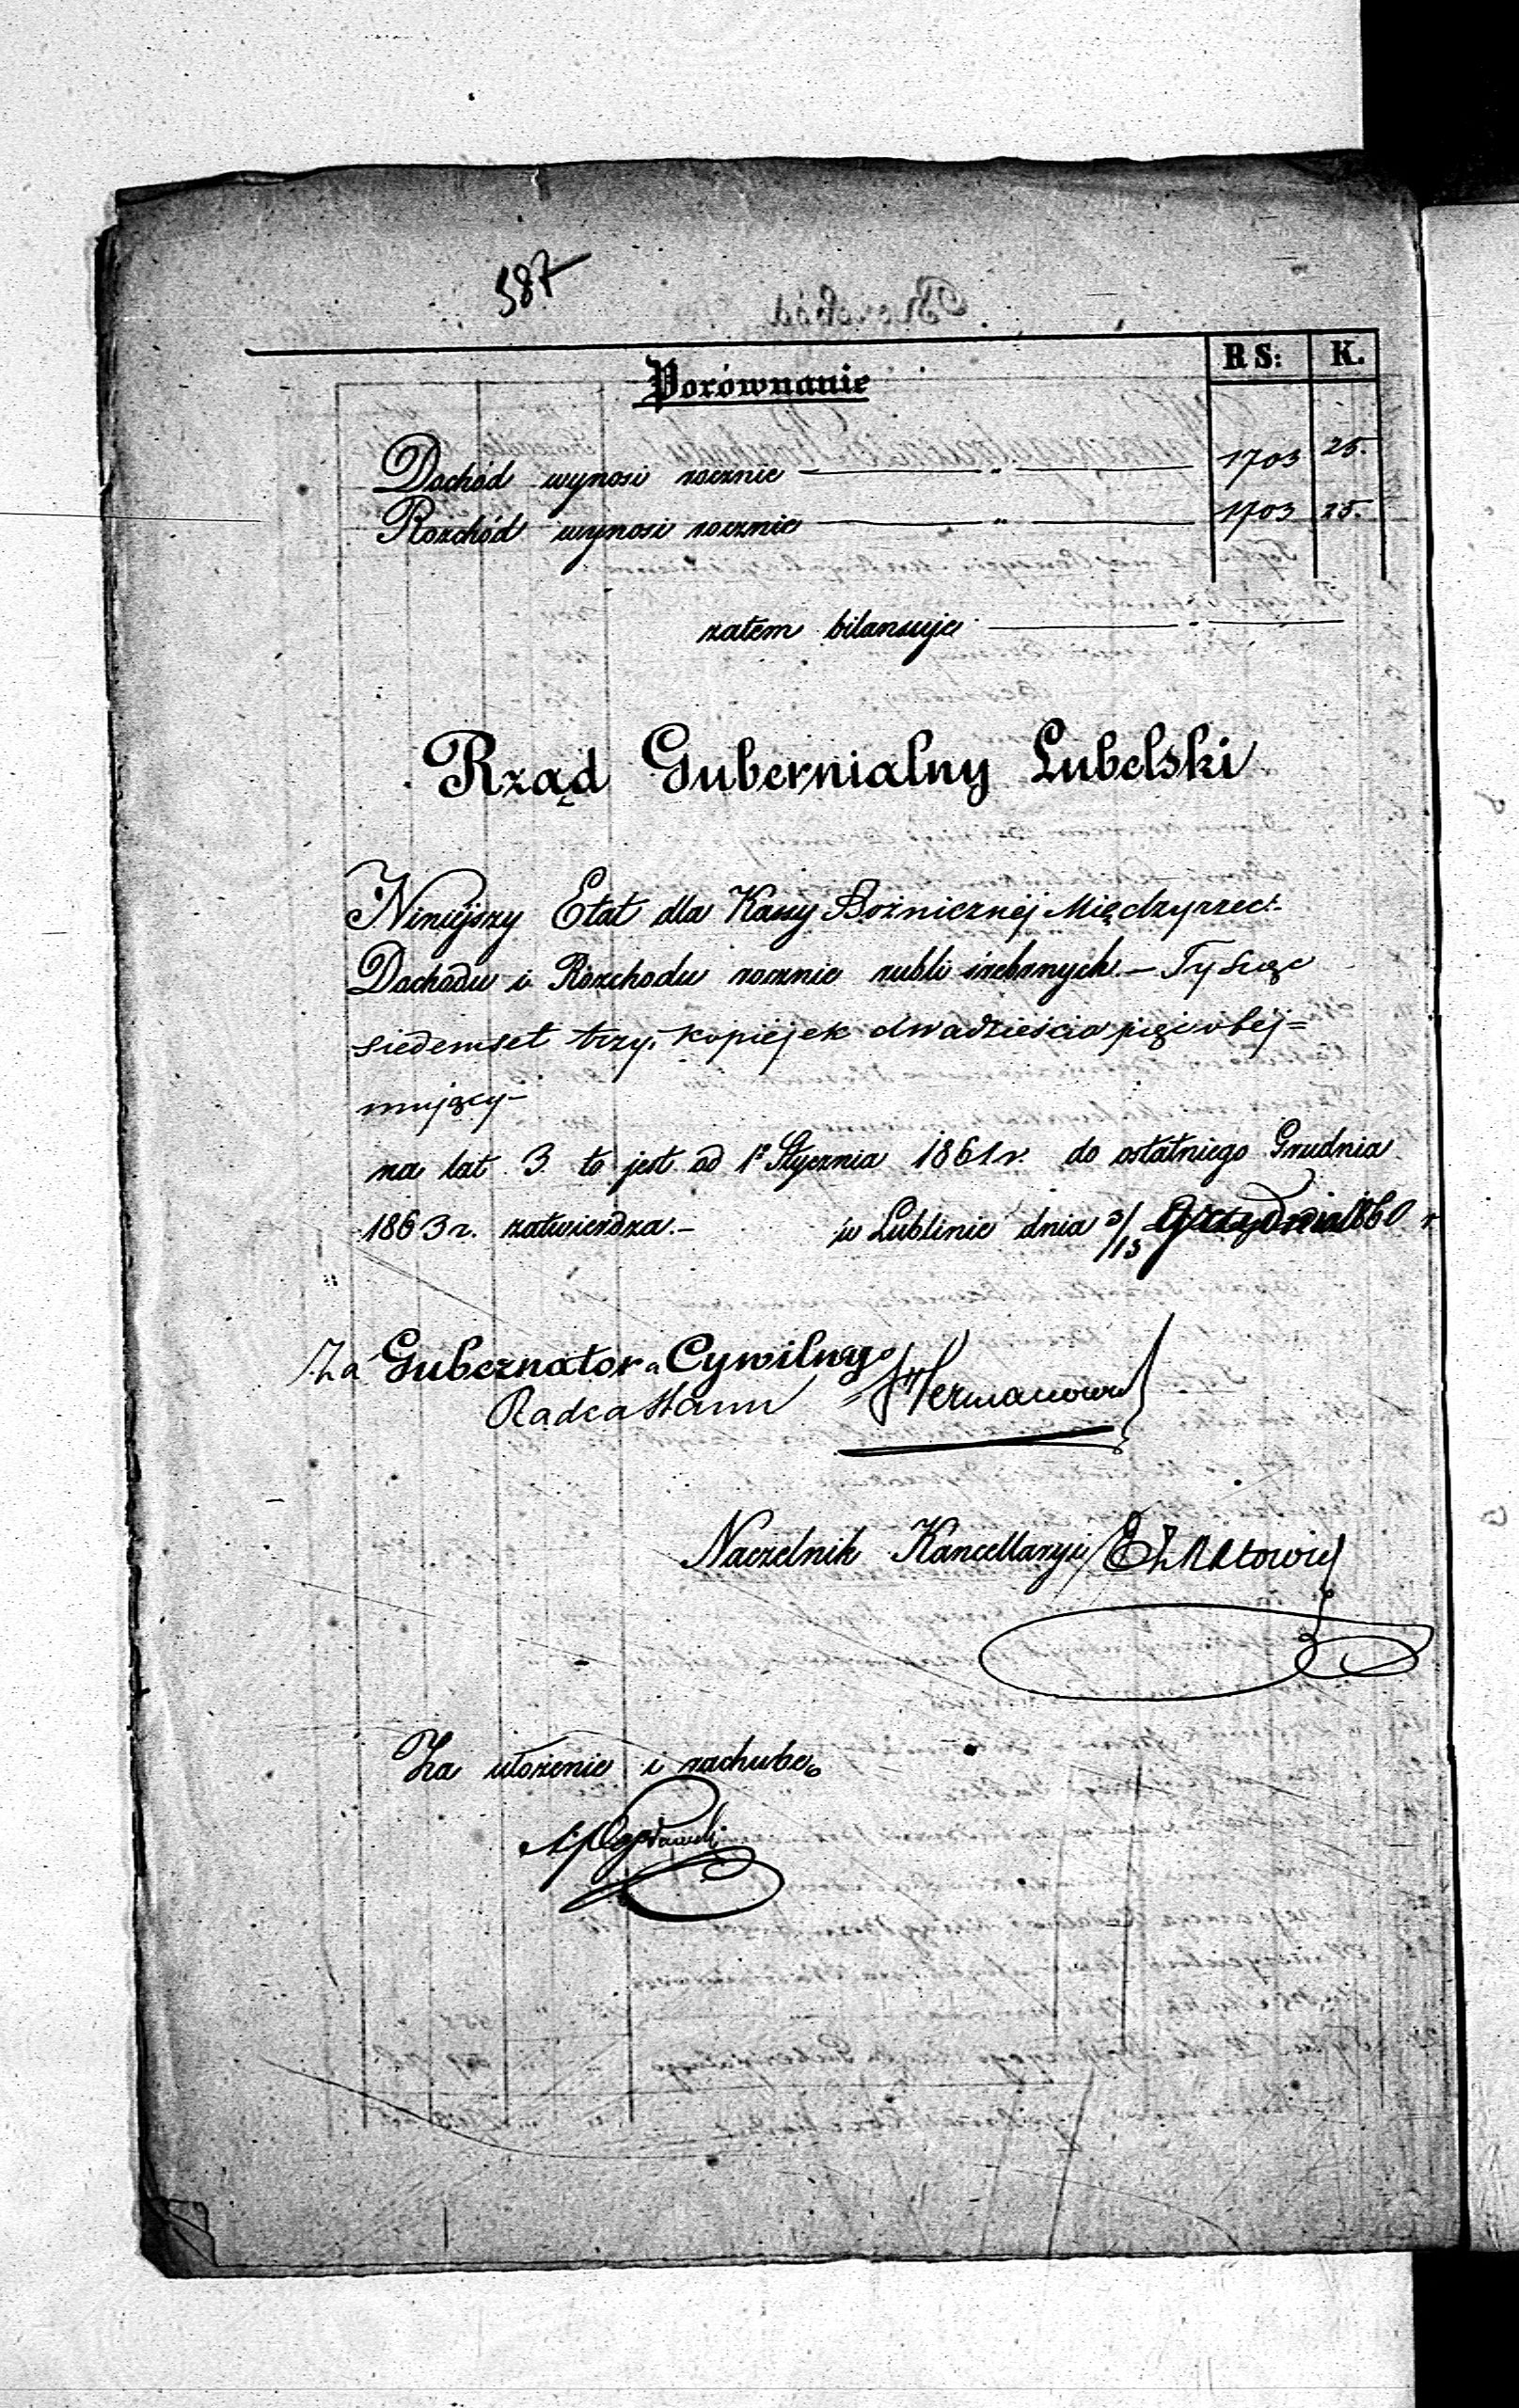 587
Porównanie
RS: K.
Dochód wynosi rocznie — „ — 1703 25.
Rozchód wynosi rocznie — „ — 1703 25.
zatem bilansuje — „ —
Rząd Gubernialny Lubelski
Niniejszy Etat dla Kassy Bożnicznéj Międzyrzec:
Dochodu i Rozchodu rocznie rubli srebrnych – Tysiąc
siedemset trzy, kopiejek dwadzieścia pięć obej=
mujący –
na lat 3 to jest od 1º Stycznia 1861 r. do ostatniego Grudnia
1863 r. zatwierdza. – w Lublinie dnia 3/15 1860 r
Za Gubernatora Cywilnego
Radca Stanu
Naczelnik Kancellaryi
Za ułożenie i rachubę